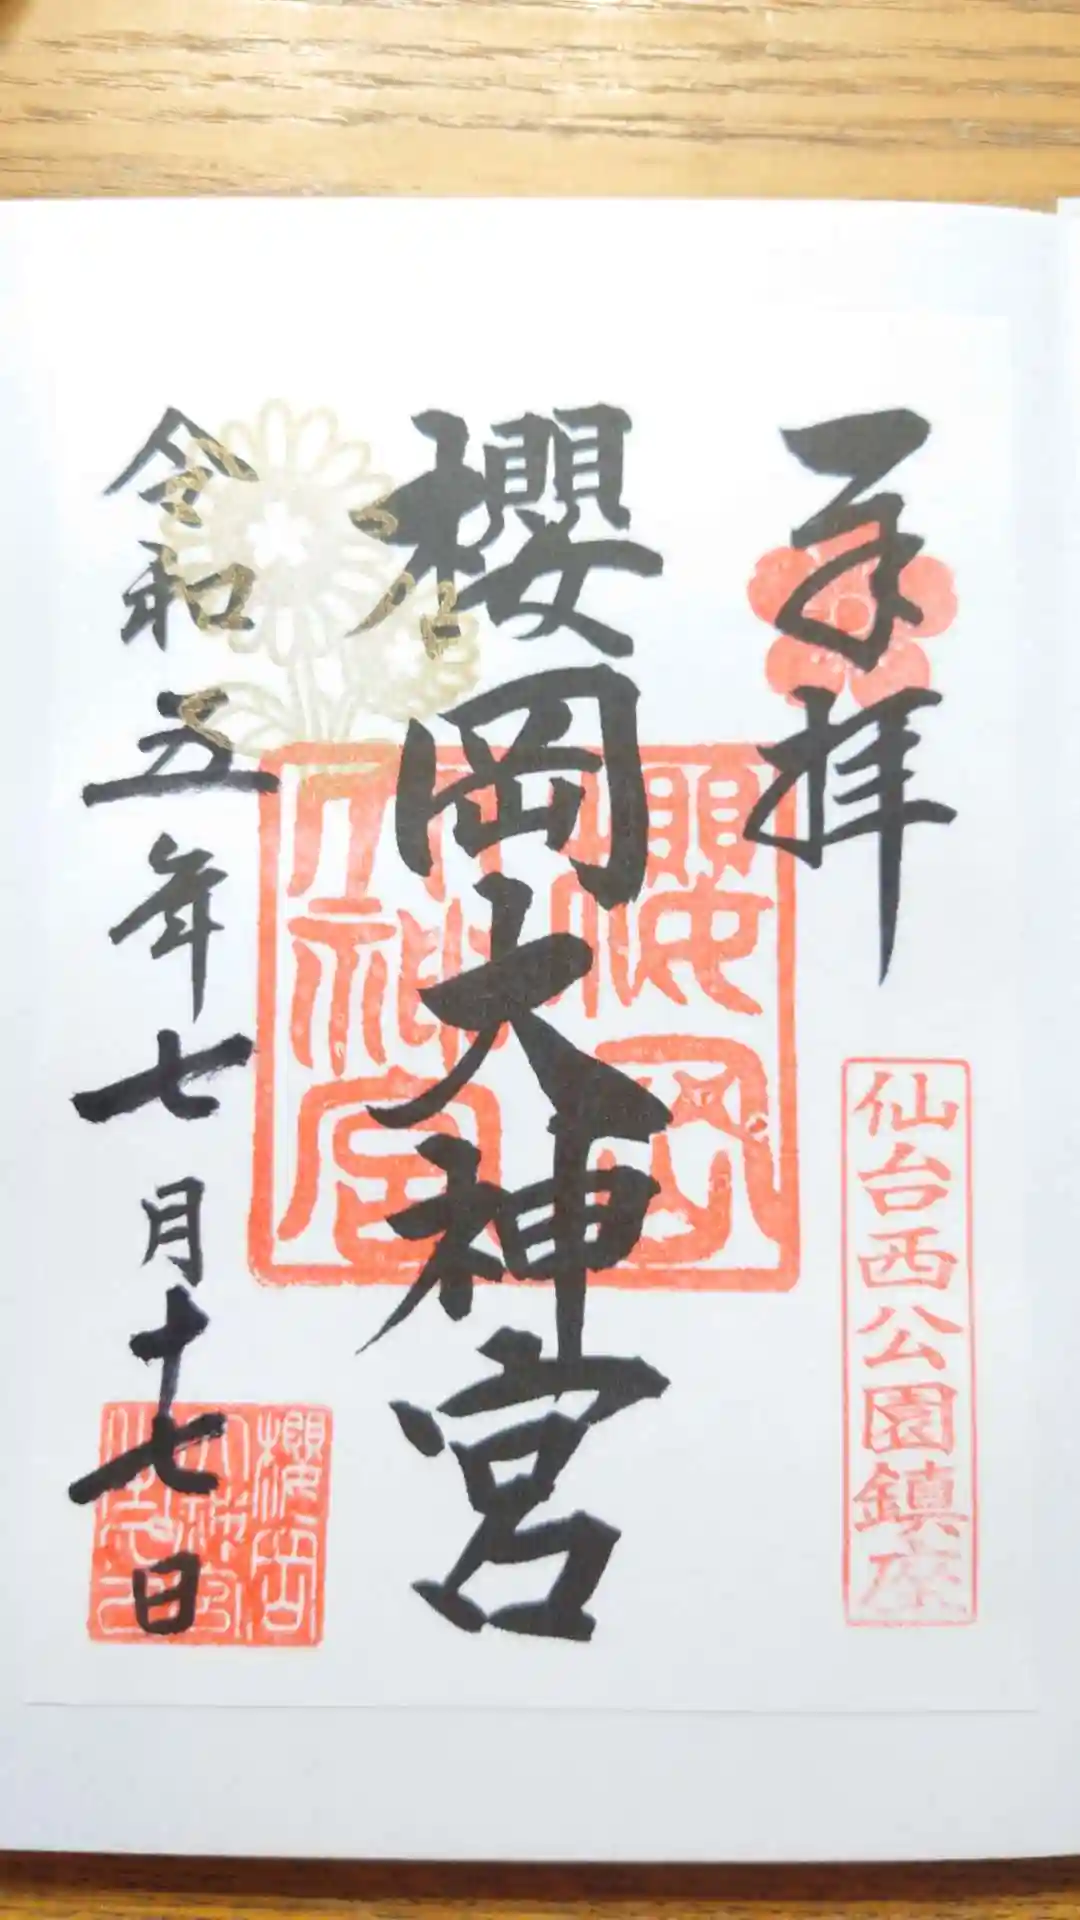 奉拝
仙台西公園鎮座
櫻岡大神宮
櫻岡
大神宮
令和五年七月十七日